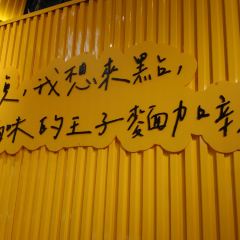 ,我想來點,
味的王子麵加辛